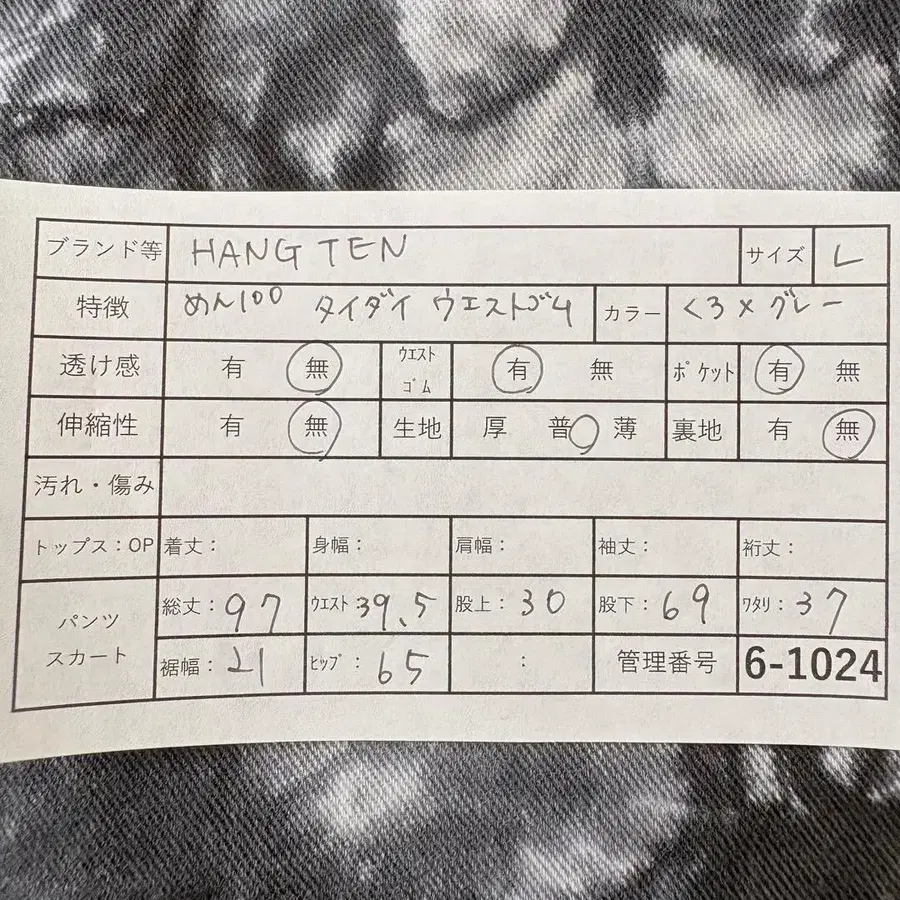 ブランド等 HANG TEN サイズ L
特徴 めん100 タイダイ ウエストゴム カラー くろ×グレー
透け感 有 無 ウエストゴム 有 無 ポケット 有 無
伸縮性 有 無 生地 厚 普 薄 裏地 有 無
汚れ・傷み
トップス：OP 着丈： 身幅： 肩幅： 袖丈： 裄丈：
パンツ スカート 総丈：97 ウエスト 39.5 股上：30 股下：69 ワタリ：37
裾幅：21 ヒップ：65 ： 管理番号 6-1024